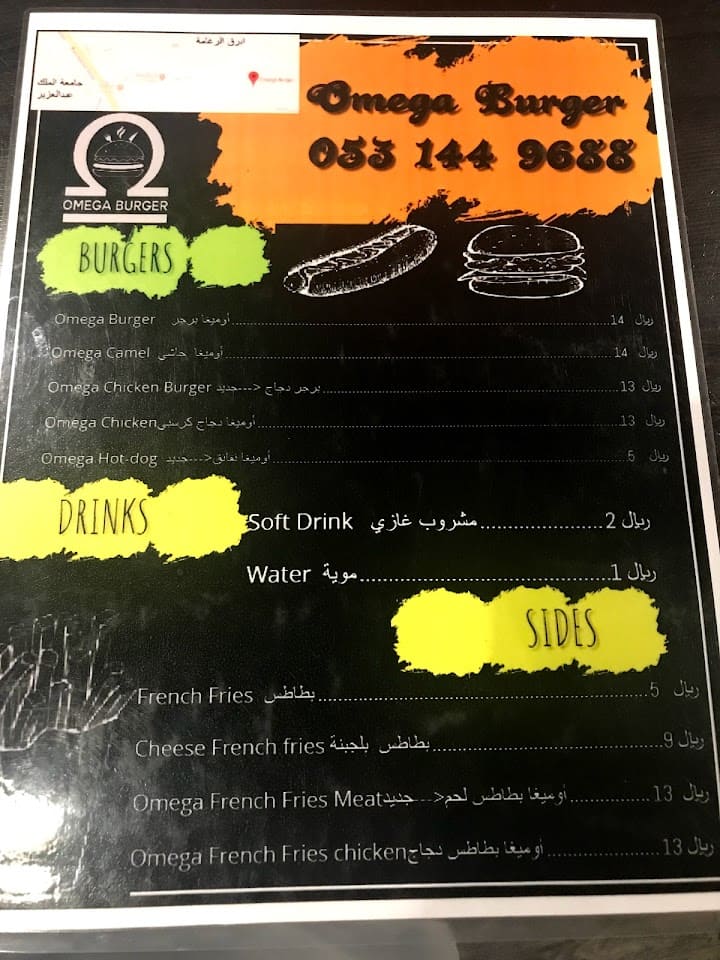 ابرق الرغامة
جامعة الملك
عبدالعزيز
Omega Burger
053 144 9688
OMEGA BURGER
BURGERS
Omega Burger أوميغا برجر 14 ريال
Omega Camel أوميغا حاشي 14 ريال
Omega Chicken Burger برجر دجاج <---جديد 13 ريال
Omega Chicken أوميغا دجاج كرسبي 13 ريال
Omega Hot-dog أوميغا نقانق<---جديد 5 ريال
DRINKS
Soft Drink مشروب غازي 2 ريال
Water موية 1 ريال
SIDES
French Fries بطاطس 5 ريال
Cheese French fries بطاطس بلجبنة 9 ريال
Omega French Fries Meat أوميغا بطاطس لحم<---جديد 13 ريال
Omega French Fries chicken أوميغا بطاطس دجاج 13 ريال